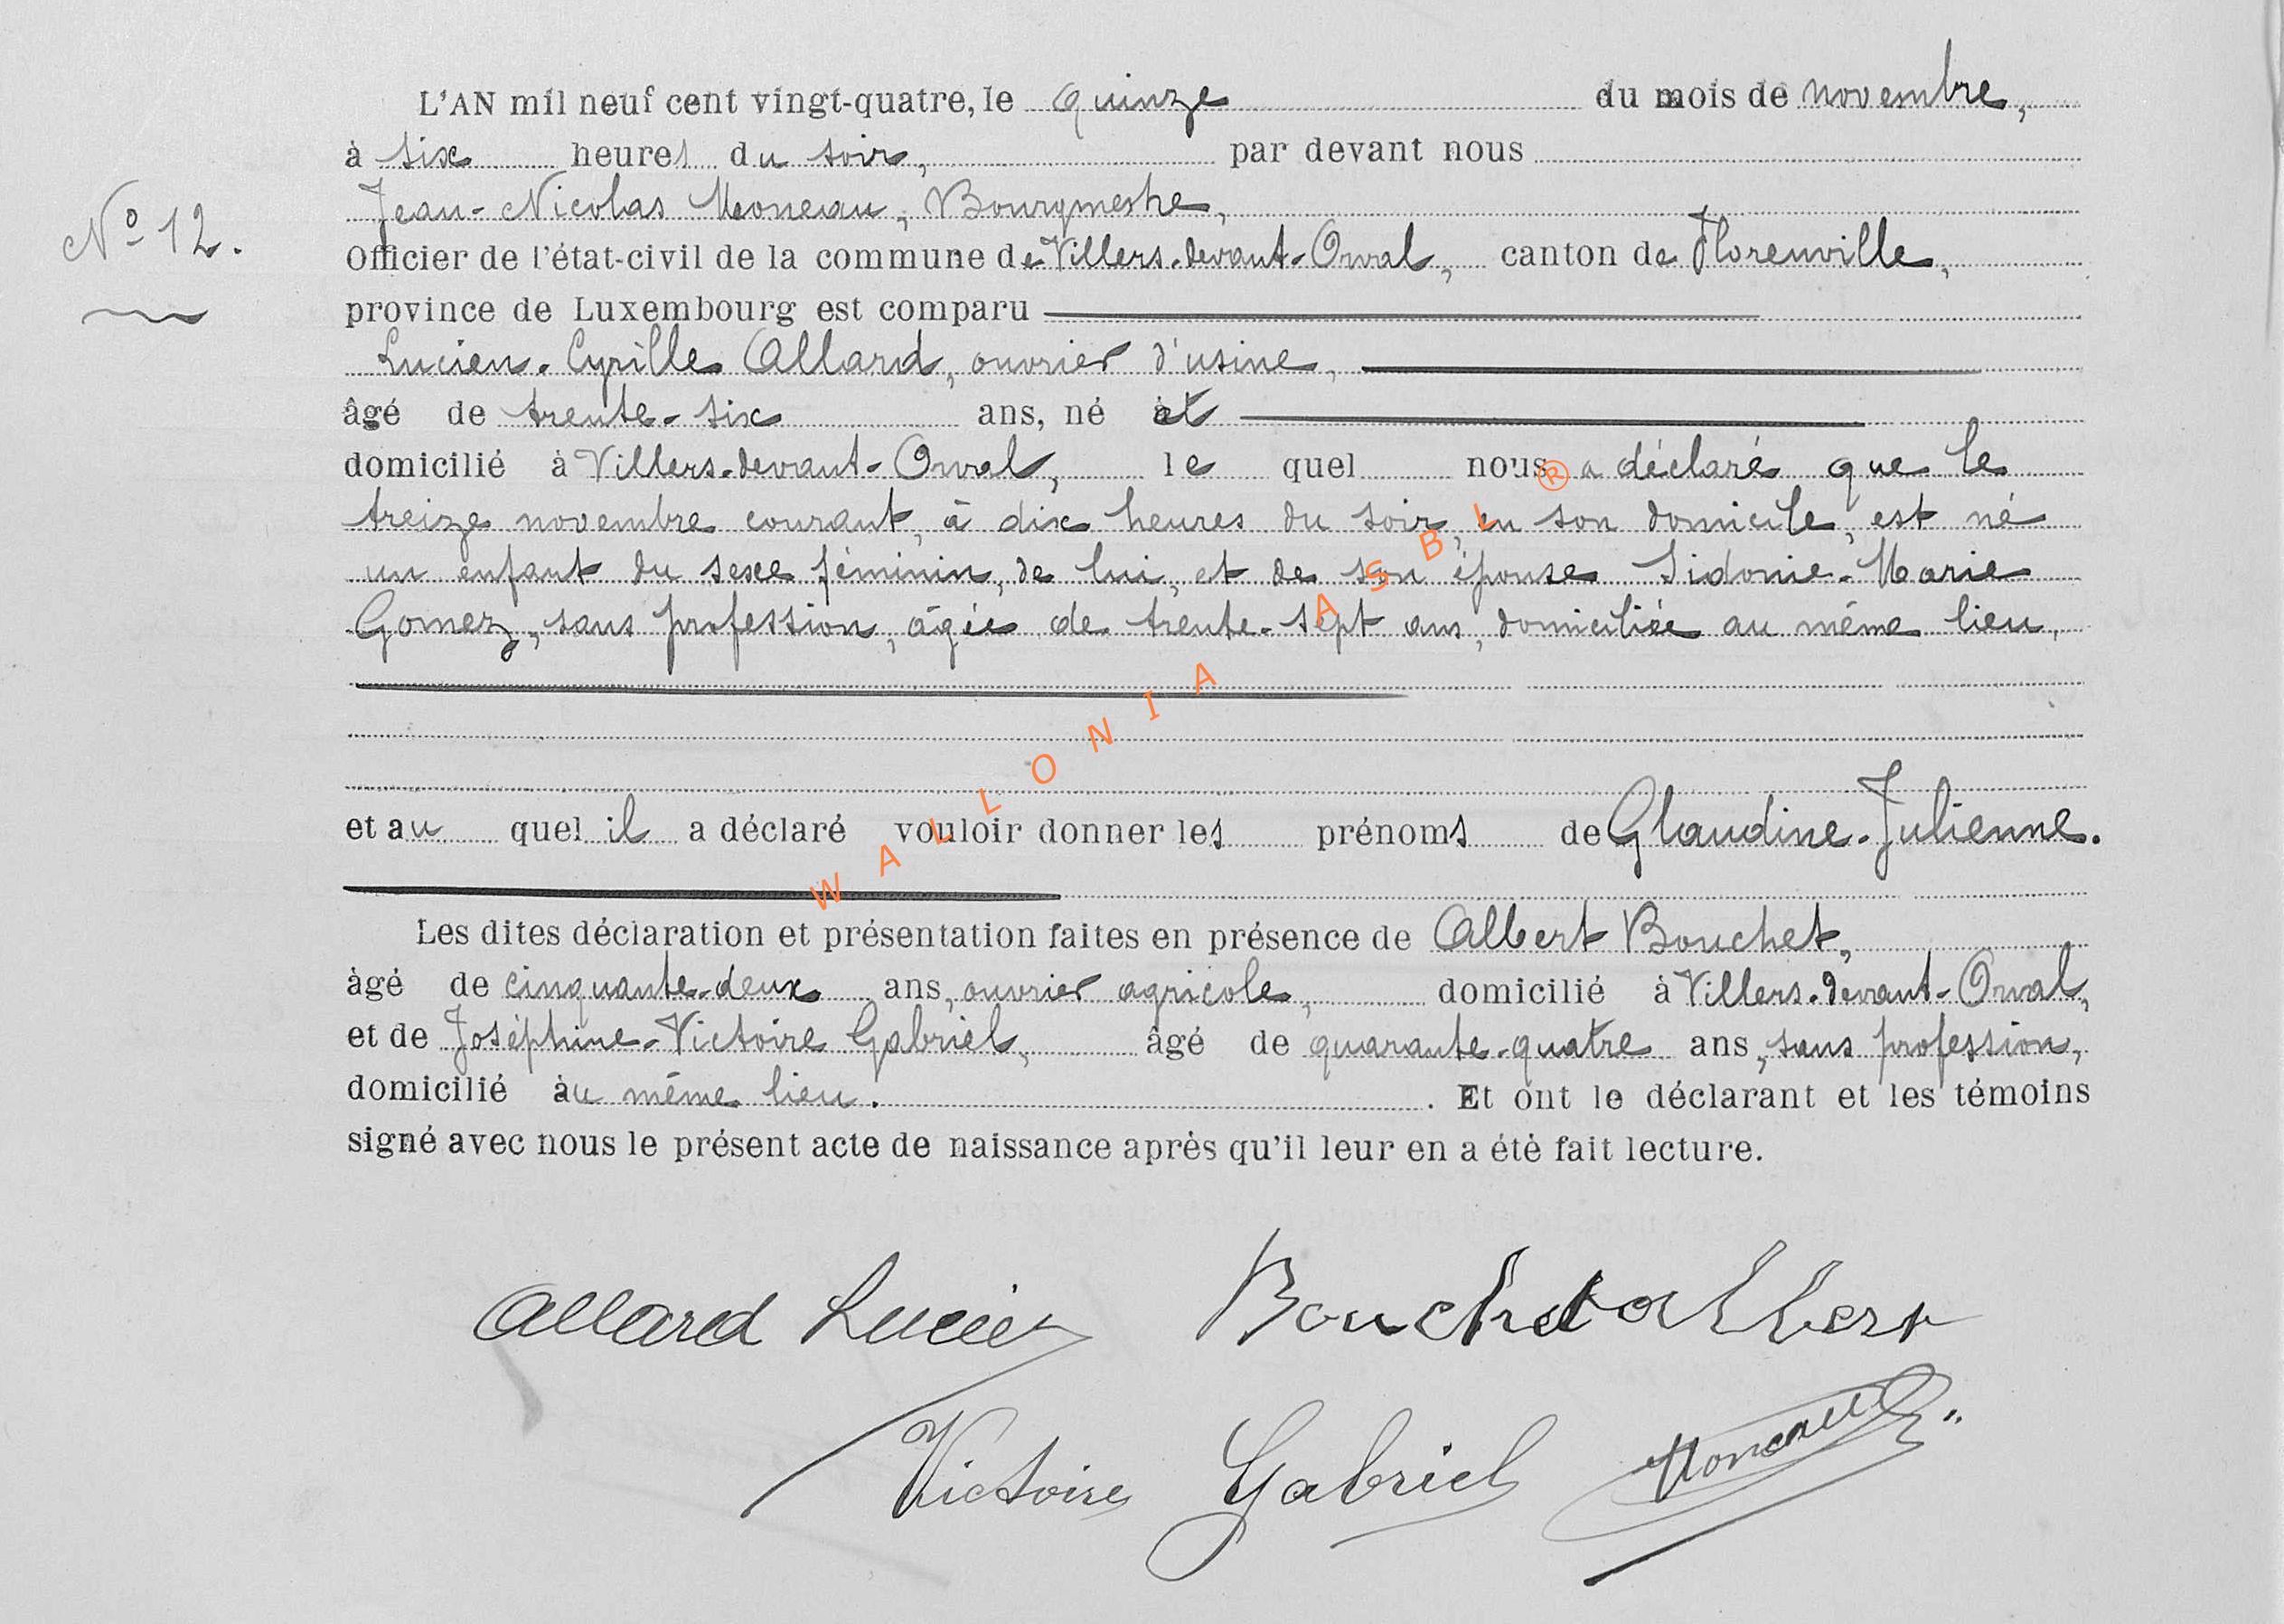 L'AN mil neuf cent vingt-quatre, le quinze du mois de novembre,
à six heures du soir, par devant nous
Jean-Nicolas Moneau, Bourgmestre,
N° 12.
Officier de l'état-civil de la commune de Villers-devant-Orval, canton de Florenville,
province de Luxembourg est comparu
Lucien-Cyrille Allard, ouvrier d'usine,
âgé de trente-six ans, né et
domicilié à Villers-devant-Orval, le quel nous a déclaré que le
treize novembre courant, à dix heures du soir, en son domicile, est né
un enfant du sexe féminin, de lui, et de son épouse Sidonie-Marie
Gomez, sans profession, âgée de trente-sept ans, domiciliée au même lieu,
et au quel il a déclaré vouloir donner les prénoms de Glaudine-Julienne.
Les dites déclaration et présentation faites en présence de Albert Bouchet,
âgé de cinquante-deux ans, ouvrier agricole, domicilié à Villers-devant-Orval,
et de Joséphine-Victoire Gabriel, âgé de quarante-quatre ans, sans profession,
domicilié au même lieu. . Et ont le déclarant et les témoins
signé avec nous le présent acte de naissance après qu'il leur en a été fait lecture.
Allard Lucien Bouchet Albert
Victoire Gabriel Moneau
WALLONIA ASBL ®